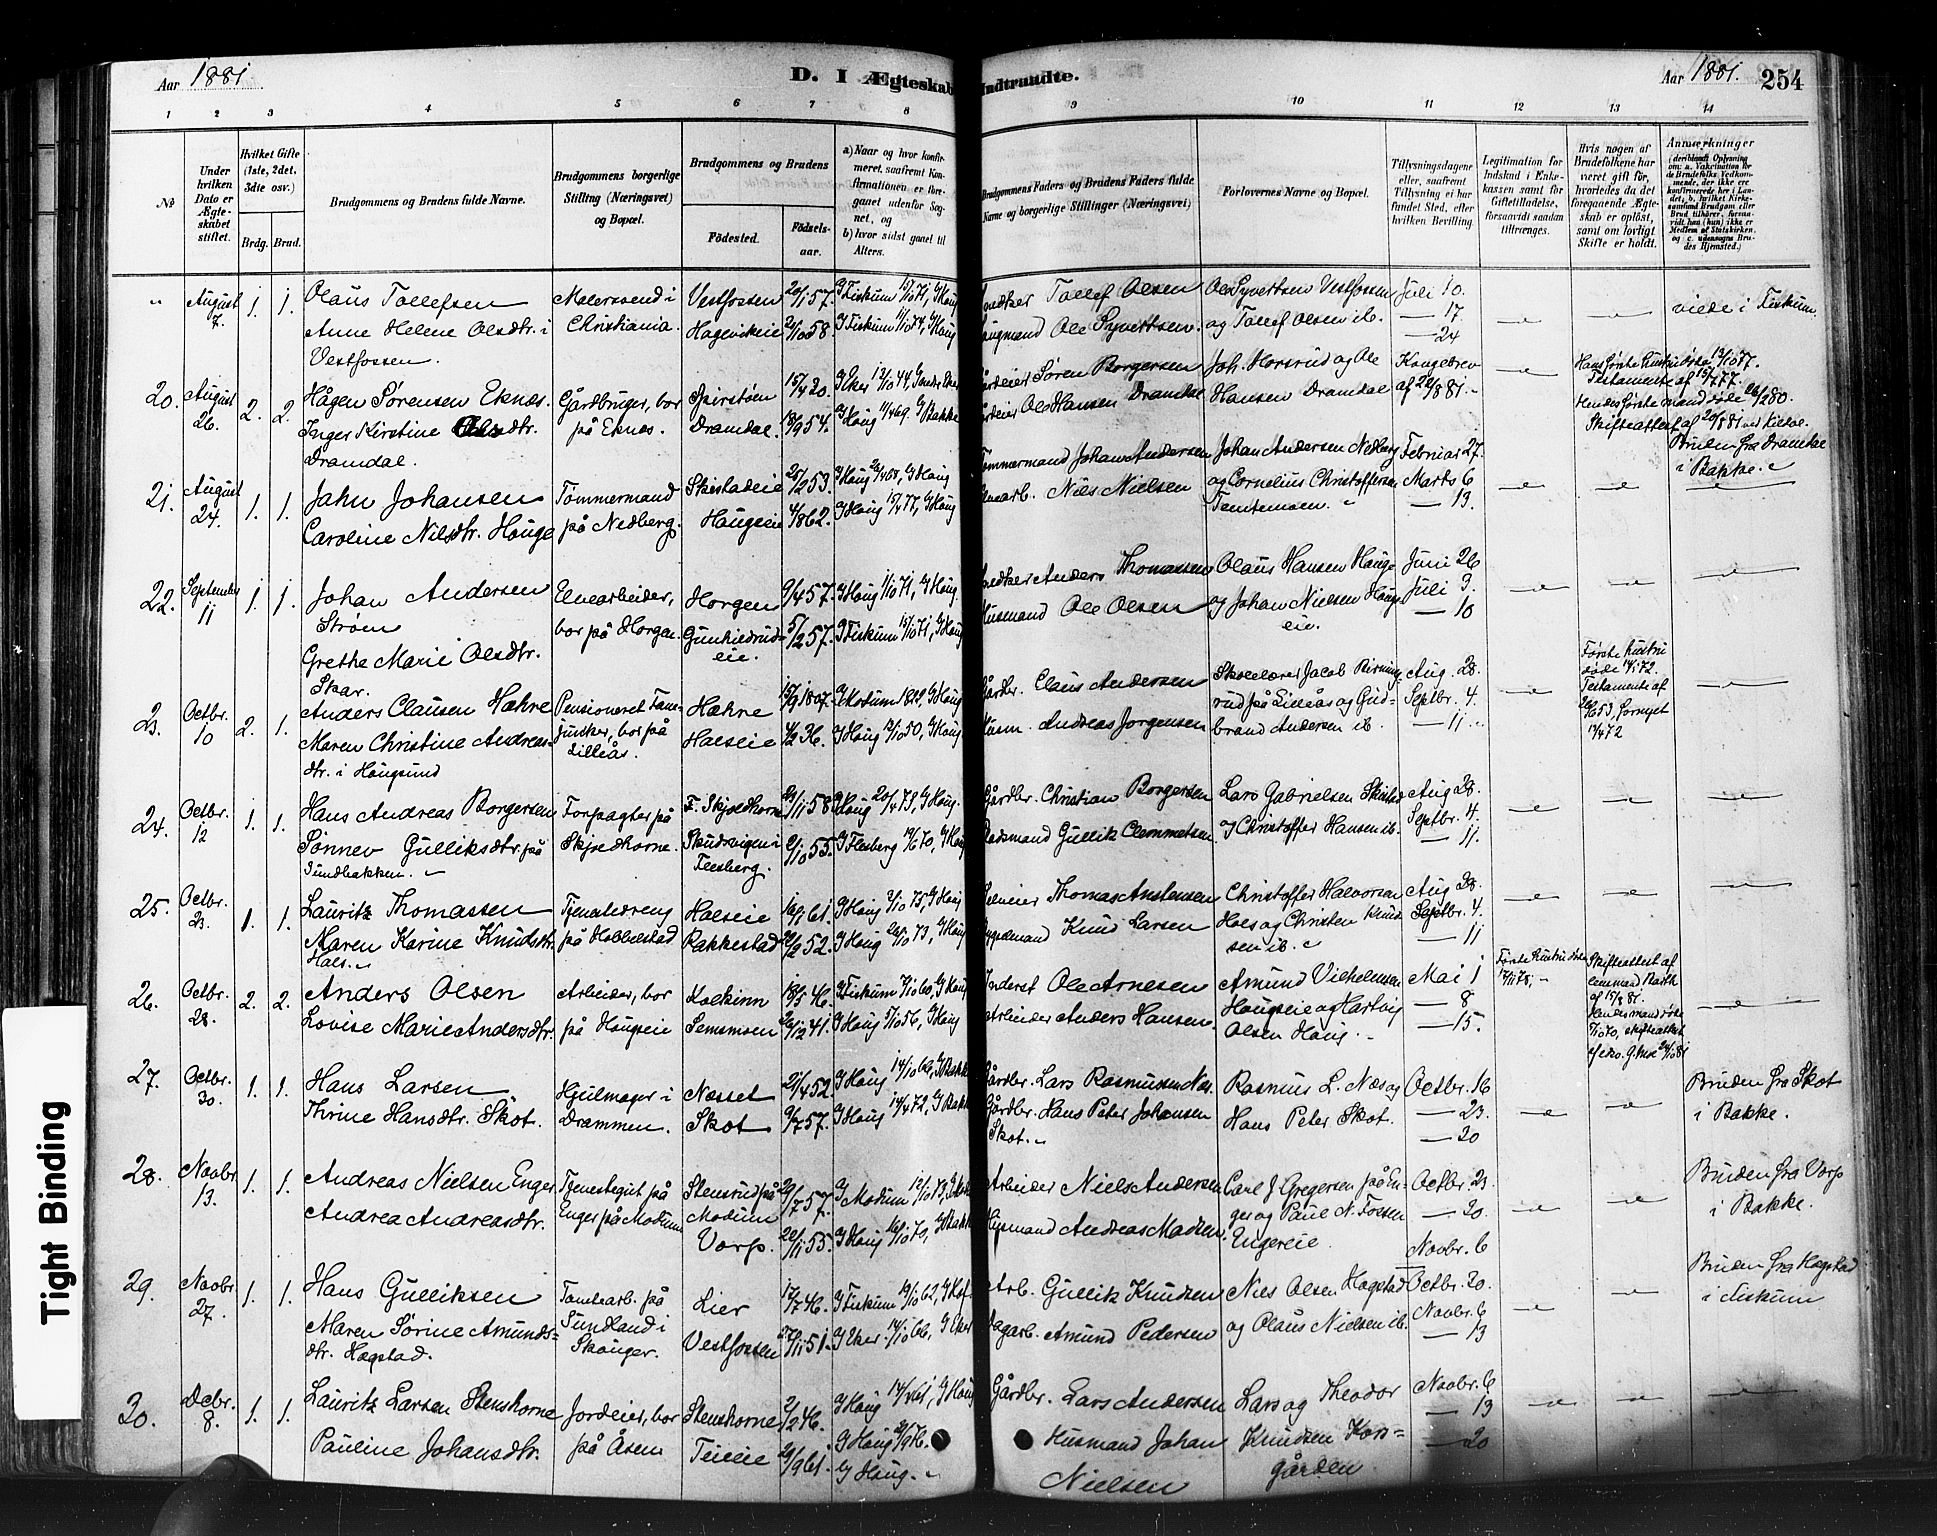 Aar 1881
D. I Ægteskab Indtraadte.
Aar 1881. 254
1 2 3 4 5 6 7 8 9 10 11 12 13 14
No
Under hvilken Dato er Ægteskabet stiftet.
Hvilket Gifte (1ste, 2det, 3die osv.)
Brdg. Brud.
Brudgommens og Brudens fulde Navne.
Brudgommens borgerlige Stilling (Næringsvei) og Bopæl.
Brudgommens og Brudens
Födested. Födsels-aar.
a) Naar og hvor konfirmeret, saafremt Konfirmationen er foregaaet udenfor Sognet, og
b) hvor sidst gaaet til Alters.
Brudgommens Faders og Brudens Faders fulde Navne og borgerlige Stillinger (Næringsvei)
Forlovernes Navne og Bopæl.
Tillysningsdagene eller, saafremt Tillysning ei har fundet Sted, efter hvilken Bevilling
Legitimation for Indskud i Enkekassen samt for Giftetilladelse, forsaavidt saadan tiltrænges.
Hvis nogen af Brudefolkene har været gift før, hvorledes da det foregaaende Ægteskab er opløst, samt om lovligt Skifte er holdt.
Anmærkninger
" August 7. 1. 1. Olaus Tollefsen
Anne Helene Olsdtr. i
Vestfossen.
Malersvend i
Christiania.
Vestfossen 20/1 57.
Hagenskeie 2/10 58
G Fiskum 15/10 71, G Haug
G Fiskum 11/10 74, G Haug
Tollef Olsen
Ole Syvertsen.
Ole Syvertsen Vestfossen
og Tollef Olsen ib.
Juli 10.
— 17.
— 24
viede i Fiskum.
20. August 26. 2. 2. Hågen Sørensen Eknes.
Inger Kirstine Olsdtr.
Dramdal.
Gårdbruger, bor
på Eknes.
Spirstøen 15/4 20.
Dramdal. 18/9 54.
Gårdeier Søren Borgersen
Gårdeier Ole Hansen Dramdal
Joh. Horsrud og Ole
Hansen Dramdal
Kongebrev
af 22/8 81.
Hans første hustru døde 13/10 77.
Testamente af 15/7 77.
Hendes første mand døde 26/2 80.
Skifteattest af 20/8 81
Bruden fra Dramdal
i Bakke.
21. August 24. 1. 1. Jahn Johansen
Caroline Nilsdtr. Hauge
Tømmermand
på Nedberg.
Skistadeie 25/2 53.
Haugeie 4/8 62.
G Haug 15/4 77, G Haug
Tømmermand Johan Andersen
Niels Nielsen
Johan Andersen Nedberg
og Cornelius Christoffersen
Temtemoen.
Februar 27.
Marts 6
— 13.
22. September 11 1. 1. Johan Andersen
Strøm
Grethe Marie Olsdtr.
Skar.
Elvearbeider,
bor på Horgen.
Horgen 9/4 57.
Gunhildrud-
eie. 5/2 57.
G Haug 1/10 71, G Haug
G Fiskum 15/10 71, G Haug
Anders Thomassen
Husmand Ole Olsen
Olaus Hansen Haug
og Johan Nielsen Haugs
eie.
Juni 26
Juli 3.
— 10
23. Octbr. 10 2. 1. Anders Clausen Hæhre
Maren Christine Andreas-
dtr. i Haugsund
Pensioneret Fan-
junker, bor på
Lilleås.
Hæhre 15/9 1807.
Halseie 4/2 36.
G Haug 13/10 50, G Haug
Gårdbr. Claus Andersen
Husm. Andreas Jorgensen
Skolelærer Jacob Birming
rud på Lilleås og Gud-
brand Andersen ib.
Aug. 28.
Septbr. 4.
— 11.
Første hustru
døde 14/1 72.
Testamente af
fornyet
17/4 72
24. Octbr. 12 1. 1. Hans Andreas Borgersen
Sønnev Gulliksdtr. på
Sundbakken.
Forpagter på
Skjoldhorne.
F. Skjoldhorne 23/11 58
Skudsvigen i
Flesberg. 2/10 55.
G Haug 20/4 73, G Haug.
G Flesberg 19/6 70, G Haug
Gårdbr. Christian Borgersen
Gullik Clemmetsen
Lars Gabrielsen Skistad
og Christoffer Hansen ib.
Aug. 28.
Septbr. 4.
— 11.
25. Octbr. 23. 1. 1. Lauritz Thomassen
Maren Karine Knudsdtr.
Hals.
Tjenestedreng
på Hobbelstad
Halseie 16/1 61.
Rakkestad 22/2 52.
G Haug 3/10 75, G Haug
G Haug 26/10 73, G Haug
Thomas Anstensen
Knud Larsen
Christoffer Halvorsen
Hals og Christen Knud
sen ib.
Aug 28.
Septbr. 4.
— 11
26. Octbr. 28. 2. 2. Anders Olsen
Lovise Marie Andersdtr.
Arbeider, bor
på Haugseie
Kolkinn 18/5 46.
Semsmoen 26/12 41.
G Fiskum 7/10 60, G Haug
G Haug 5/10 56, G Haug
Inderst Ole Arnesen
Arbeider Anders Hansen.
Amund Vilhelmsen
Haugseie og Hartvig
Olsen Haug.
Mai 1
— 8
— 15.
Første hustru døde
17/11 78.
Skifteattest af
lensmand Barth
af 15/8 81.
Hendes mand døde
7/10 70, skifteattest
27. Octbr. 30. 1. 1. Hans Larsen
Thrine Hansdtr. Skot.
Hjulmager i
Drammen.
Næsset 21/4 52.
Skot 9/7 57.
G Haug 14/10 66, G Bakke
G Haug 14/4 72, G Bakke
Gårdbr. Lars Rasmussen Næs.
Gårdbr. Hans Peter Johansen
Skot.
Rasmus L. Næs og
Hans Peter Skot.
Octbr. 16
— 23.
— 30
Bruden fra Skot
i Bakke.
28. Novbr 13. 1. 1. Andreas Nielsen Enger
Andrea Andreasdtr.
Tjenestegut på
Enger på Modum
Stensrud på
Modum 29/7 57.
Vorp. 22/11 55.
G Haug 16/10 70, G Bakke
Arbeider Niels Andersen
Husmand Andreas Madsen.
Carl J Gregersen på En-
ger og Paul N. Fossen
Engereie.
Octbr. 23
— 30.
Novbr. 6
Bruden fra Vorp
i Bakke.
29. Novbr. 27. 1. 1. Hans Gulliksen
Maren Sørine Amunds-
dtr. Hogstad.
Tomtearb. på
Sundland i
Skouger.
Lier 17/7 46.
Vestfossen 27/11 51.
G Fiskum 19/10 62,
G Eker 14/10 66, G Eker
Arb. Gullik Knudsen
Dagarb. Amund Pedersen
Niels Olsen Hogstad
og Olaus Nielsen ib.
Octbr. 30.
Novbr. 6
— 13
Bruden fra Hogstad
i Fiskum
30. Debr. 8. 1. 1. Lauritz Larsen Stenshorne
Pauline Johansdtr.
Jordeier, bor
på Åsen
Stenshorne 2/2 46.
Teieie 20/9 61.
G Haug 14/4 61, G Haug
G Haug
G Haug.
Gårdbr. Lars Andersen
Husmand Johan
Nielsen
Lars og Theodor
Knudsen Kors-
gården
Novbr. 6
— 13
— 20
Tight Binding